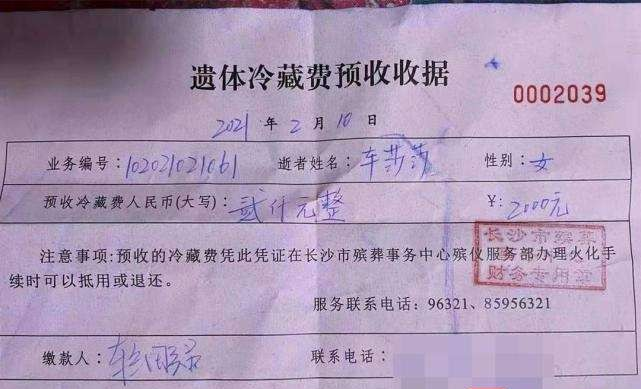 遗体冷藏费预收收据
0002039
2021 年 2 月 10 日
业务编号:102021021061 逝者姓名:车莎莎 性别:女
预收冷藏费人民币(大写):贰仟元整 ¥:2000元
注意事项:预收的冷藏费凭此凭证在长沙市殡葬事务中心殡仪服务部办理火化手
续时可以抵用或退还。
长沙市殡葬
财务专用章
服务联系电话:96321、85956321
缴款人: 联系电话: